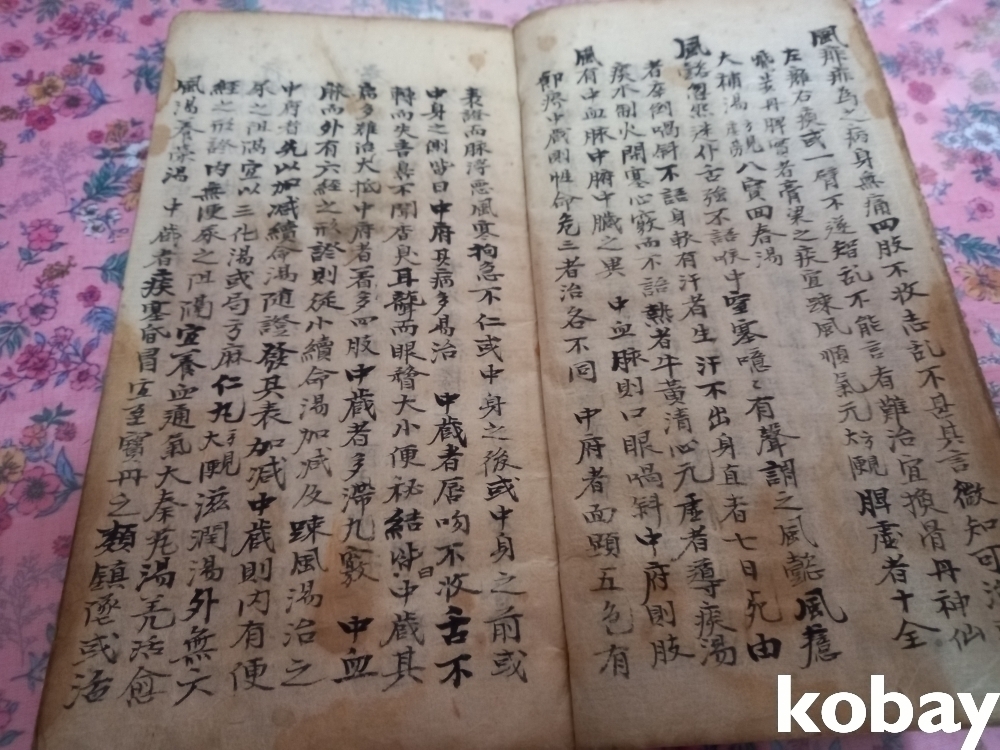 風痱痱爲之病身無痛四肢不收志乱不甚其言微知可治
左癱右瘓或一臂不遂智乱不能言者難治宜換骨丹神仙
飛步丹脾胃者膏梁之疾宜踈風順氣元大颿脾虛者十全
大補湯 八宝四春湯
風懿忽然迷仆舌強不語喉中窒塞噫〻有聲謂之風懿風癔
者卒倒喎斜不語身軟有汗者生汗不出身直者七日死由
痰不制火閉塞心竅而不語熱者牛黃清心元虛者導痰湯
風有中血脉中腑中臟之異 中血脉則口眼喎斜中府則肢
節廢中臟則性命危三者治各不同 中府者面顕五色有
表證而脉浮惡風寒拘急不仁或中身之後或中身之前或
中身之側皆曰中府其病多易治 中臟者唇吻不收舌不
轉而失音鼻不聞香臭耳聾而眼瞀大小便秘結皆曰中臟其
病多難治大抵中府者着多四肢中臟者多滯九竅 中血
脉而外有六經之形證則從小續命湯加减及踈風湯治之
中府者先以加减續命湯随證發其表加减中臟則內有便
尿之阻隔宜以三化湯或局方麻仁丸大颿滋潤湯外無六
經之形證內無便尿之阻隔宜養血通氣大秦艽湯羌活愈
風湯養榮湯 中臟者痰塞昏冒宜至寶丹之類鎮墜或活
kobay